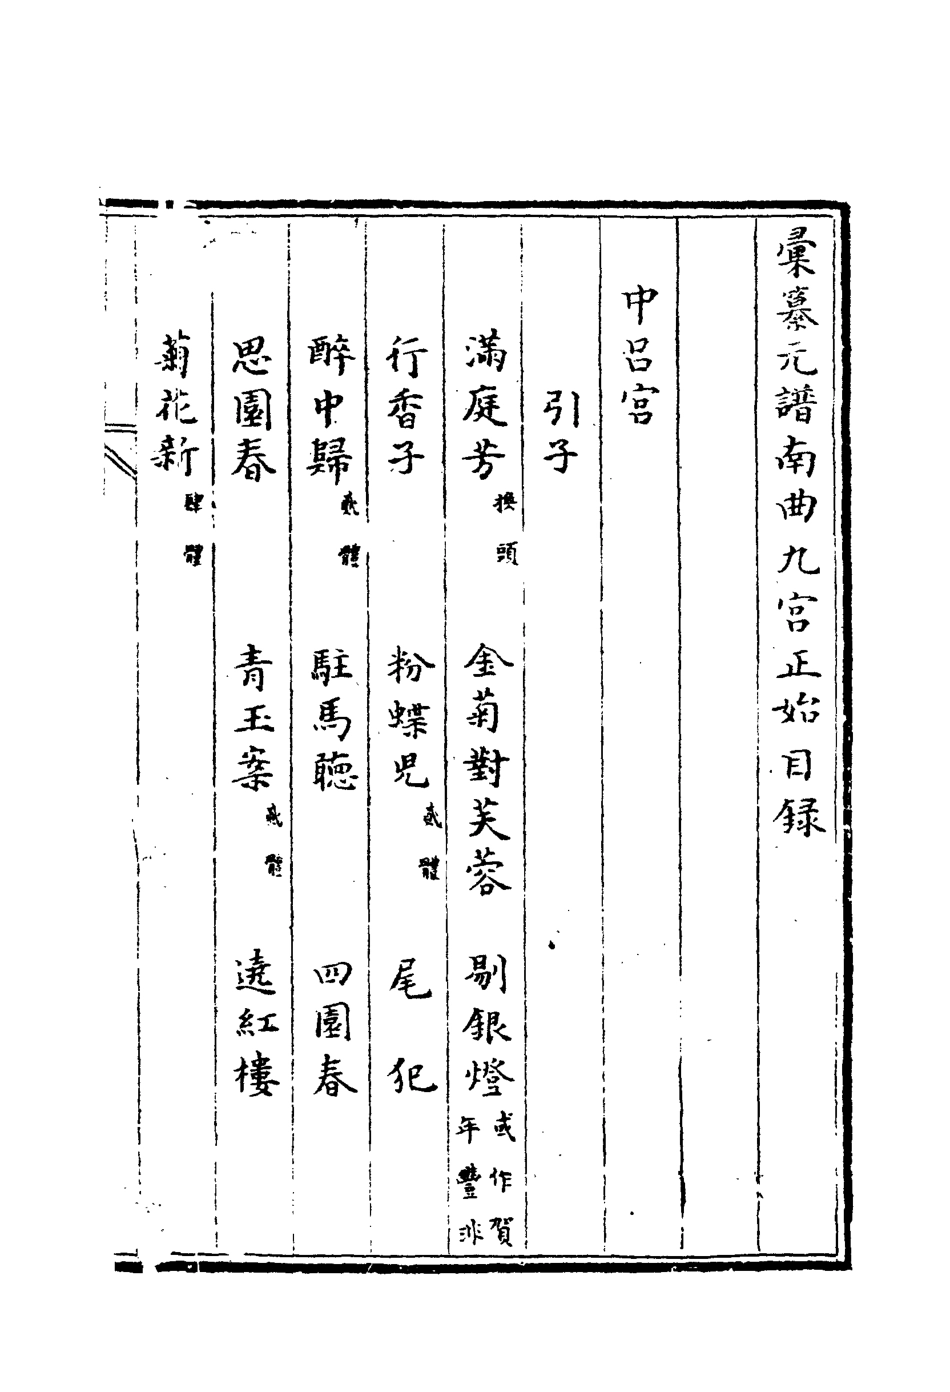 彙纂元譜南曲九宮正始目録
中呂宮
引子
滿庭芳換頭 金菊對芙蓉 剔銀燈或作賀年豐非
行香子 粉蝶児貳體 尾犯
醉中歸貳體 駐馬聽 四園春
思園春 青玉案貳體 遶紅樓
菊花新肆體